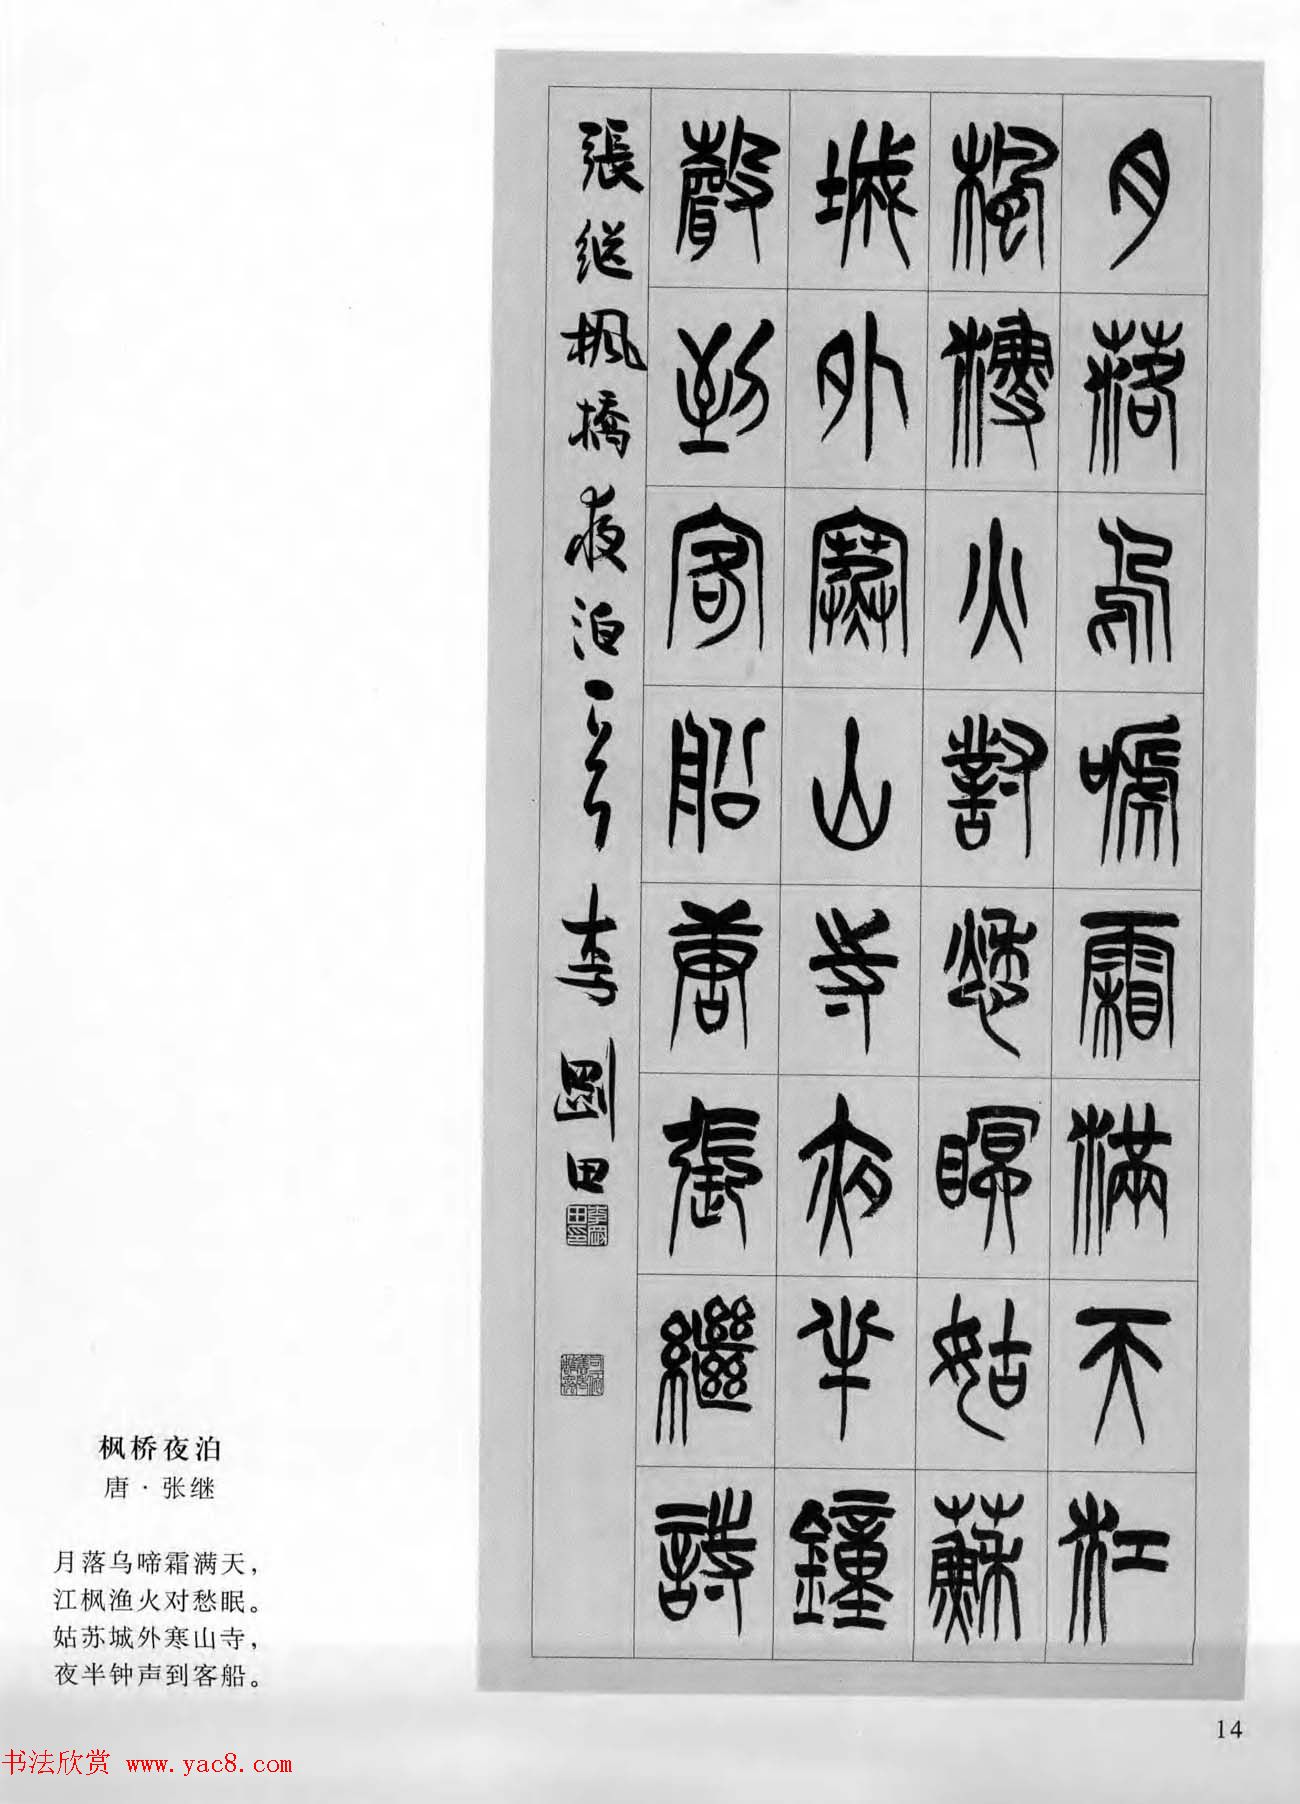 月落烏嗁霜滿天江
楓漁火對愁瞑姑蘇
城外寒山寺夜半鐘
聲到客船唐張繼詩
張继楓橋夜泊一首 李剛田
李剛田印
枫桥夜泊
唐·张继
月落乌啼霜满天，
江枫渔火对愁眠。
姑苏城外寒山寺，
夜半钟声到客船。
14
书法欣赏 www.yac8.com